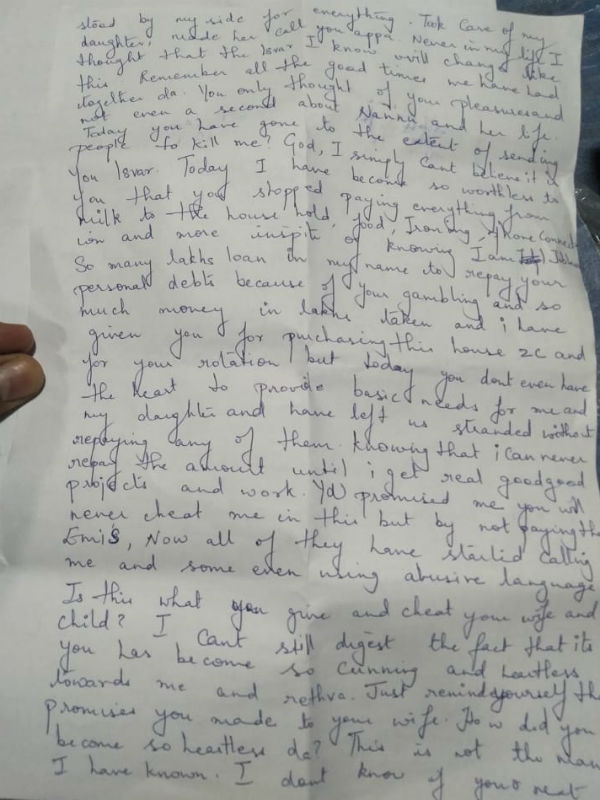 stood by my side for everything. Took care of my
daughter, made her call you appa. Never in my life I
thought that the Isvar I know will change like
this. Remember all the good times we have had
together da. You only thought of your pleasures and
not even a second about Nannu and her life.
Today you have gone to the extent of sending
people to kill me? God, I simply cant believe it is
you Isvar. Today I have become so worthless to
you that you stopped paying everything from
milk to the house hold, food, Ironing, phone connect
ion and more inspite of knowing I am
So many lakhs loan in my name to repay your
personal debts because of your gambling and so
much money in lakhs taken and i have
given you for purchasing this house 2C and
for your rotation but today you dont even have
the heart to provide basic needs for me and
my daughter and have left us stranded without
repaying any of them. knowing that i can never
repay the amount until i get real goodgood
projects and work. You promised me you will
never cheat me in this but by not paying the
Emi's, Now all of they have started calling
me and some even using abusive language
Is this what you give and cheat your wife and
child? I cant still digest the fact that its
you has become so cunning and heartless
towards me and rethva. Just remind yourself the
promises you made to your wife. How did you
become so heartless da? This is not the man
I have known. I dont know if your next